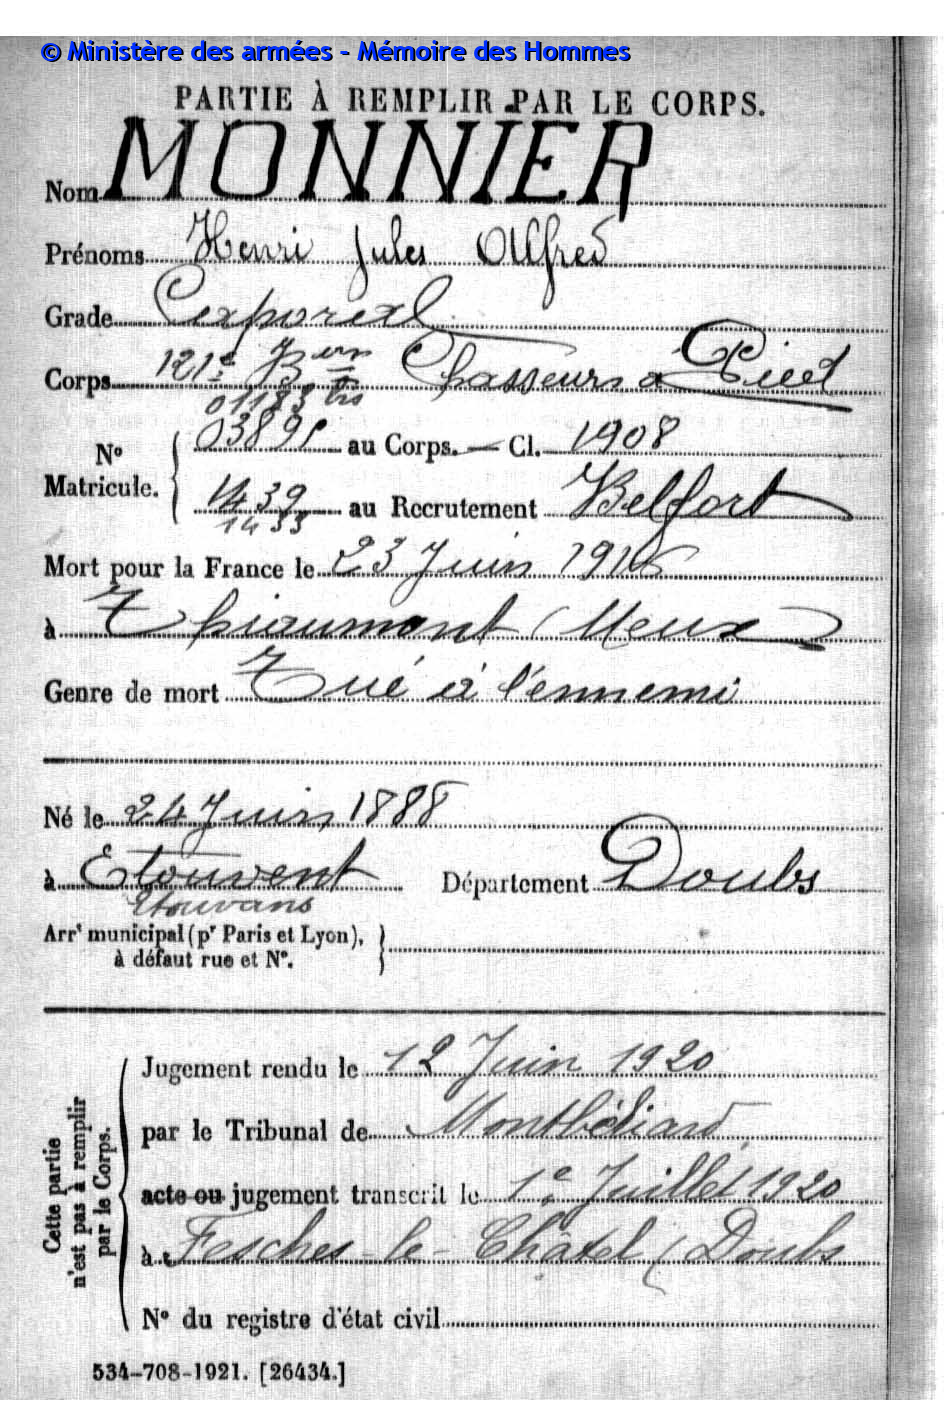 © Ministère des armées - Mémoire des Hommes
PARTIE À REMPLIR PAR LE CORPS.
Nom MONNIER
Prénoms Henri Jules Alfred
Grade Caporal
Corps 121e Bon Chasseurs à Pied
01183 bis
N° Matricule. 03891 au Corps. — Cl. 1908
1439 au Recrutement Belfort
1433
Mort pour la France le 23 Juin 1916
à Thiaumont (Meuse)
Genre de mort Tué à l'ennemi
Né le 24 Juin 1888
à Etouvent Département Doubs
Etouvans
Arrt municipal (pr Paris et Lyon),
à défaut rue et N°.
Cette partie
n'est pas à remplir
par le Corps.
Jugement rendu le 12 Juin 1920
par le Tribunal de Montbéliard
acte ou jugement transcrit le 1er Juillet 1920
à Fesches-le-Châtel (Doubs
N° du registre d'état civil
534-708-1921. [26434.]